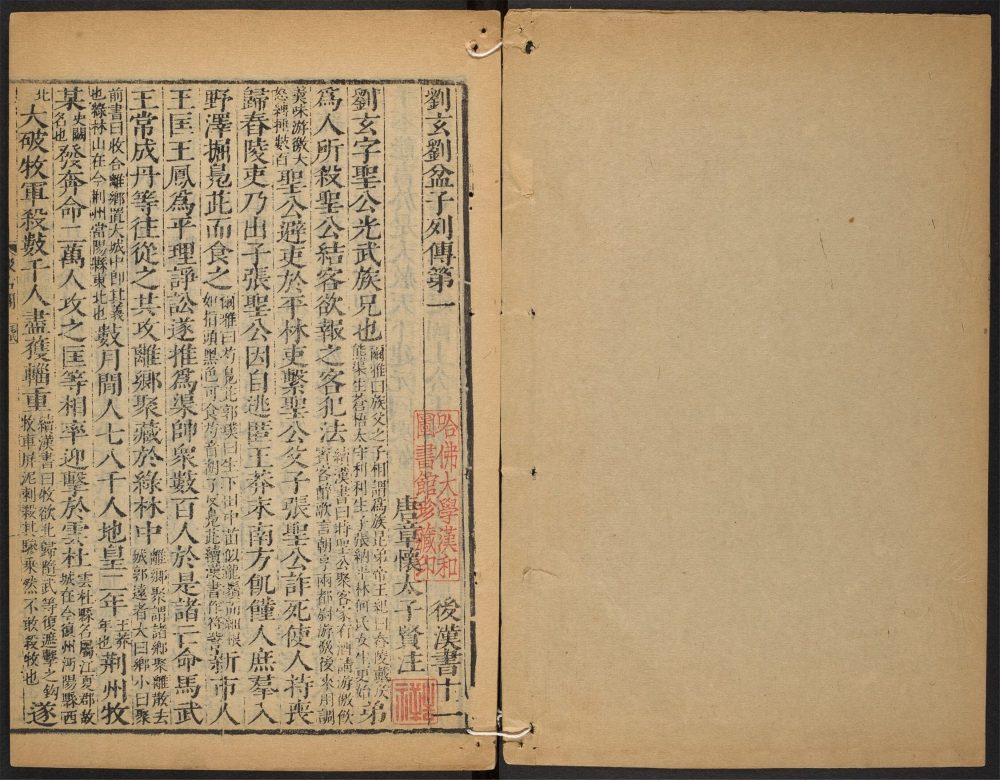 劉玄劉盆子列傳第一 後漢書十一
唐章懷太子賢注
哈佛大學漢和圖書館珍藏印
劉玄字聖公光武族兄也爾雅曰族父之子相謂為族昆弟帝王紀曰舂陵戴侯熊渠生蒼梧太守利利生子張納平林何氏女生更始弟
為人所殺聖公結客欲報之客犯法續漢書曰時聖公聚客家有酒請游徼飲賓客醉歌言朝亨兩都尉游徼後來用調
羹味游徼大怒縛捶數百聖公避吏於平林吏繫聖公父子張聖公詐死使人持喪
歸舂陵吏乃出子張聖公因自逃匿王莽末南方飢饉人庶羣入
野澤掘鳧茈而食之爾雅曰芍鳧茈郭璞曰生下田中苗似龍鬚而細根如指頭黑色可食芍音胡了反鳧茈續漢書作符訾新市人
王匡王鳳為平理諍訟遂推為渠帥衆數百人於是諸亡命馬武
王常成丹等往從之共攻離鄉聚藏於綠林中離鄉聚謂諸鄉聚離散去城郭遠者大曰鄉小曰聚
前書曰收合離鄉置大城中即其義也綠林山在今荊州當陽縣東北也數月閒人七八千人地皇二年王莽年也荊州牧
某史闕名也發奔命二萬人攻之匡等相率迎擊於雲杜雲杜縣名屬江夏郡故城在今復州沔陽縣西
北大破牧軍殺數千人盡獲輜重續漢書曰牧欲北歸隨武等復遮擊之鉤牧車屏泥刺殺其驂乘然不敢殺牧也遂